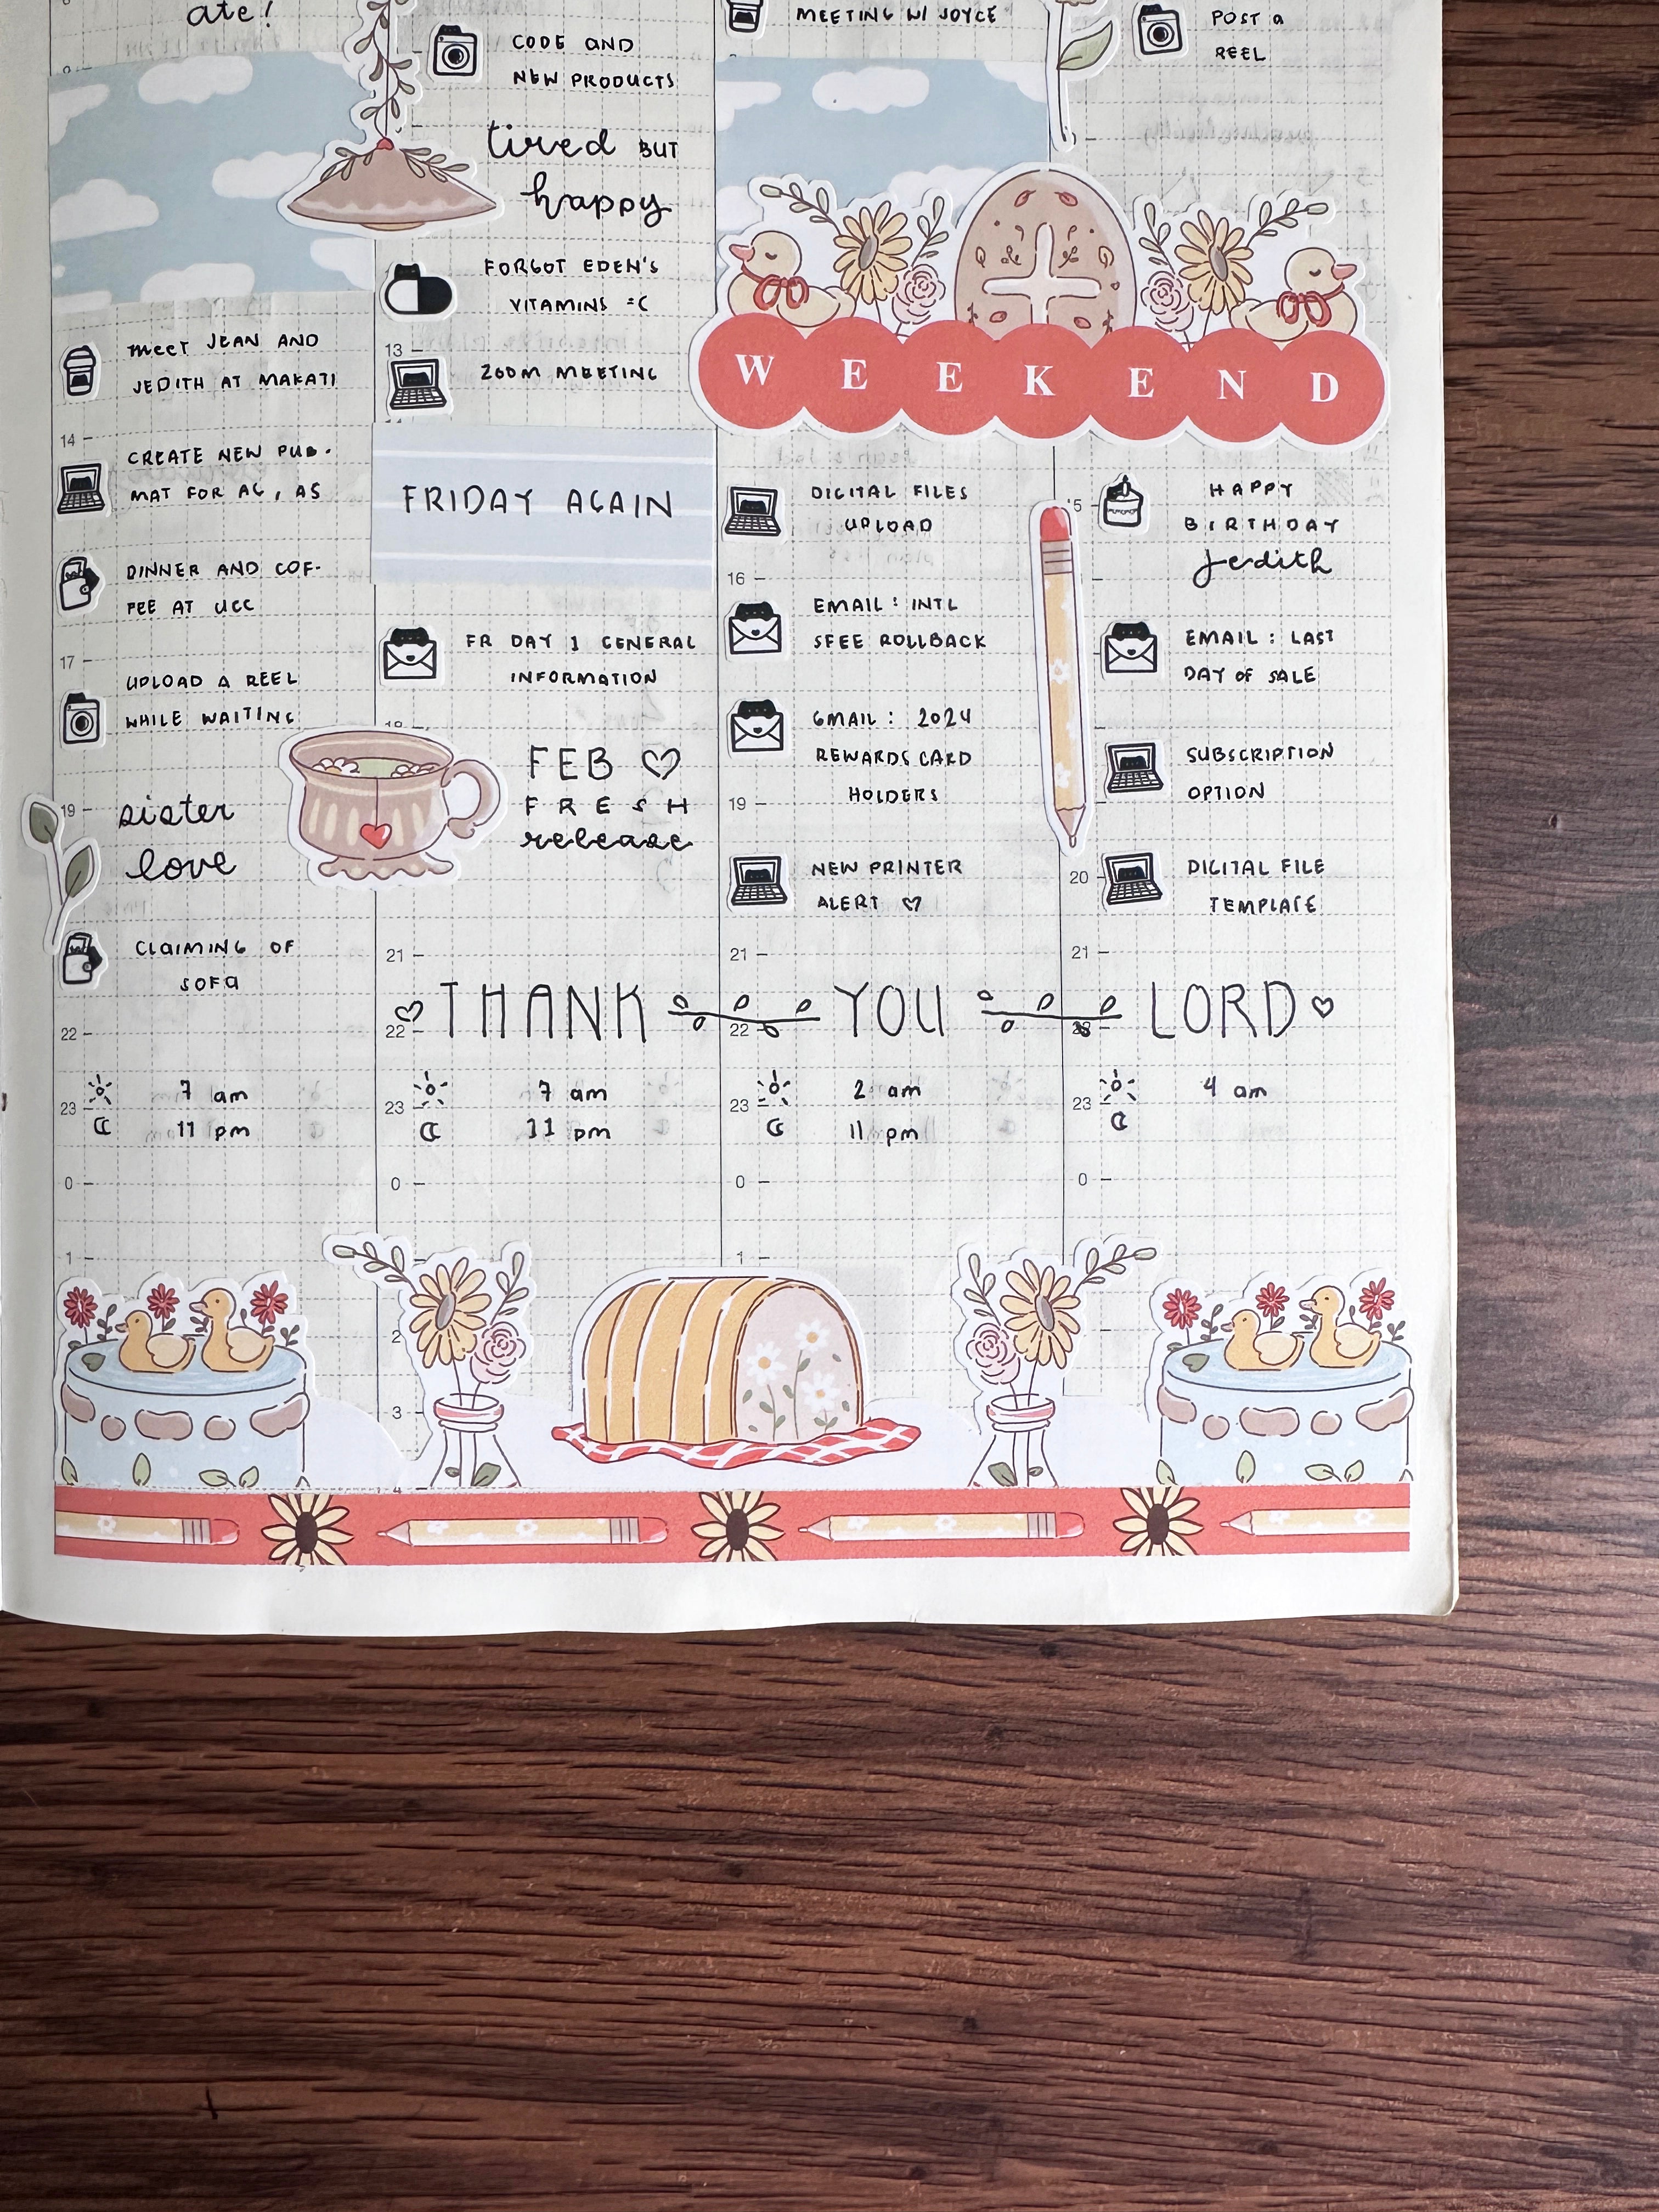 ate!
MEET JEAN AND
JEDITH AT MAKATI
14
CREATE NEW PUB-
MAT FOR AG, AS
DINNER AND COF-
FEE AT UCC
17
UPLOAD A REEL
WHILE WAITING
19
sister
love
CLAIMING OF
SOFA
22
7 am
23
11 pm
0
1
CODE AND
NEW PRODUCTS
tired BUT
happy
FORGOT EDEN'S
VITAMINS =C
13
ZOOM MEETING
FRIDAY AGAIN
FR DAY 1 GENERAL
INFORMATION
18
FEB ♡
FRESH
release
21
22
7 am
23
11 pm
0
2
3
4
MEETING W/ JOYCE
WEEKEND
DIGITAL FILES
UPLOAD
16
EMAIL: INTL
SFEE ROLLBACK
GMAIL: 2024
REWARDS CARD
HOLDERS
19
NEW PRINTER
ALERT ♡
21
22
2 am
23
11 pm
0
1
POST a
REEL
15
HAPPY
BIRTHDAY
Jedith
EMAIL: LAST
DAY OF SALE
SUBSCRIPTION
OPTION
20
DIGITAL FILE
TEMPLATE
21
♡ THANK YOU LORD ♡
22
4 am
23
0